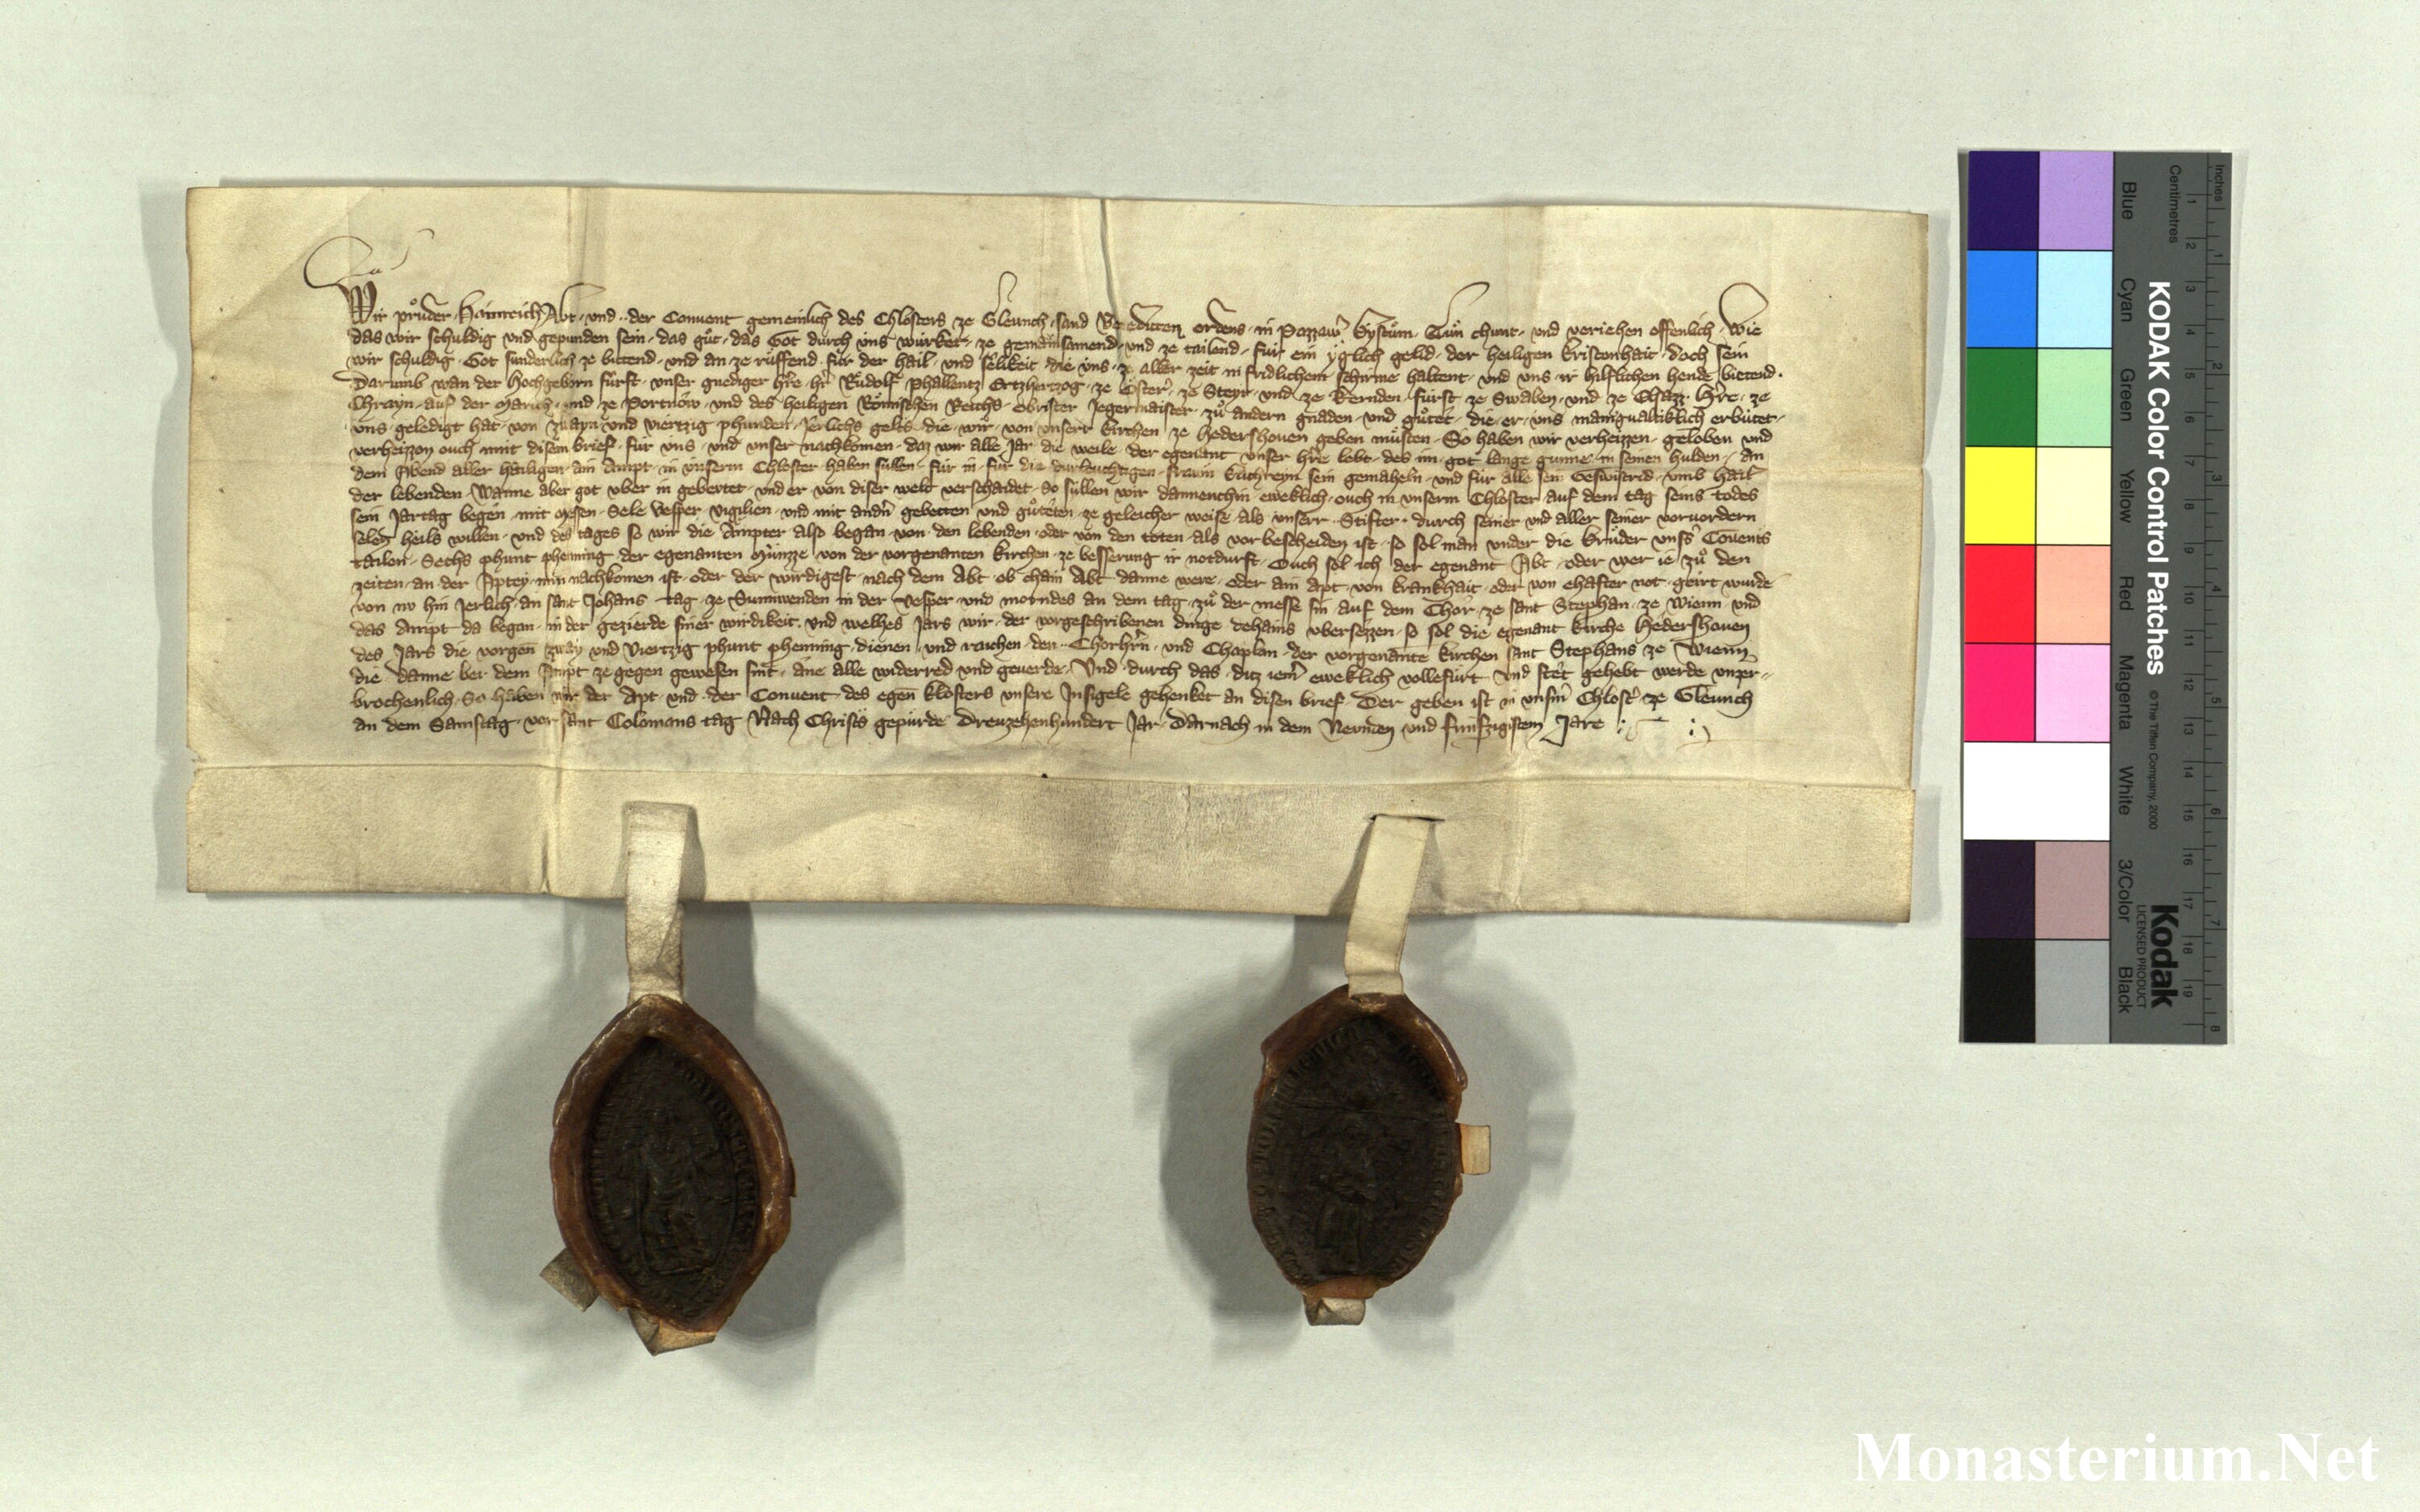 Wir průder Hainreich Abt und der Convent gemeinlich des Chlosters ze Gleunch sand Benedicten ordens in Pazzawr Bystům Tůn chunt und veriehen offenlich Wie
das wir schuldig und gepunden sein das gůt das Got durch uns würket ze gemainsamend und ze tailend für ein yglich gelid der heiligen Kristenhait doch sein
wir schuldig Got sunderlich ze bittend und an ze rüffend für der hail und selikeit die uns ze aller zeit in fridlichem schirme haltent und uns ir hilflichen hende bietend
Darumb wan der Hochgeborn fürst unser gnediger hre hr Růdolf Phallentz Ertzhertzog ze Öster ze Steyr und ze Kernden fürst ze Swaben und ze Elsazz Hre ze
Chrayn auf der March und ze Portnow und des heiligen Römischen Reichs obrister Jegermaister zů andern gnaden und gůtet die er uns manigualtiklich erbütet
uns geledigt hat von zwayn und viertzig phunden Jerlichs gelts die wir von unserr kirchen ze Hedershouen geben müsten So haben wir verheizzen geloben und
verheizzen ouch mit disem brief für uns und unser nachkomen daz wir alle Jar die weile der egenant unser hre lebt des im got lange gunne in seinen hulden An
dem Abend aller heiligen ain Ampt in unserm Chloster haben süllen für in für die durleuchtigen frawn Kathreyn sein gemaheln und für alle sein Geswistrid umb hail
der lebenden Wanne aber got uber in gebeutet und er von diser welt verschaidet so süllen wir dannenthin eweklich ouch in unserm Chloster auf dem tag seins todes
sein Jartag begen mit Messen Sele Vesper Vigilien und mit andrn gebetten und gůteten ze geleicher weise als unserr Stifter durch seiner und aller seiner vorvordern
selen heils willen und des tages so wir die Ämpter also began von den lebenden oder von den toten als vor bescheiden ist so sol man under die brüder unsers Covents
tailen Sechs phunt phenning der egenanten Münzze von der vorgenanten kirchen ze besserung ir notdurft Ouch sol ich der egenant Abt oder wer ie zů den
zeiten an der Aptey min nachkomen ist oder der wirdigest nach dem Abt ob chain Abt danne were oder ain Apt von krankhait oder von ehafter not geirt wurde
von nu hin Jerlich an sant Johans tag ze Sunnwenden in der Vesper und morndes an dem tag zů der messe sin auf dem Chor ze sant Stephan ze Wienn und
das Ampt da began in der gezierde siner wirdikeit und welhes Jars wir der vorgeschribenen dinge dehains ubersezzen so sol die egenant kirche Hedershouen
des Jars die vorgen zway und viertzig phunt phenning dienen und raichen den Chorhrn und Chaplan der vorgenante kirchen sant Stephans ze Wienn
die danne bei dem Ampt ze gegen gewesen sint ane alle widerred und geuerde Und durch das ditz iemer eweklich vollefürt und stet gehebt werde unzer-
brochenlich So haben wir der Apt und der Convent des egen klosters unsere Insigele gehenket an disen brief Der geben ist in unsrm Chloster ze Gleunch
an dem Samstag vor sant Colomans tag Nach Christs gepürde Dreuzehenhundert Jar Darnach in dem Neunden und fünfzigistem Jare
KODAK Color Control Patches
© The Tiffen Company, 2000
Kodak
LICENSED PRODUCT
Blue
Cyan
Green
Yellow
Red
Magenta
White
3/Color
Black
Centimetres
Inches
1 2 3 4 5 6 7 8 9 10 11 12 13 14 15 16 17 18 19
1 2 3 4 5 6 7 8
Monasterium.Net